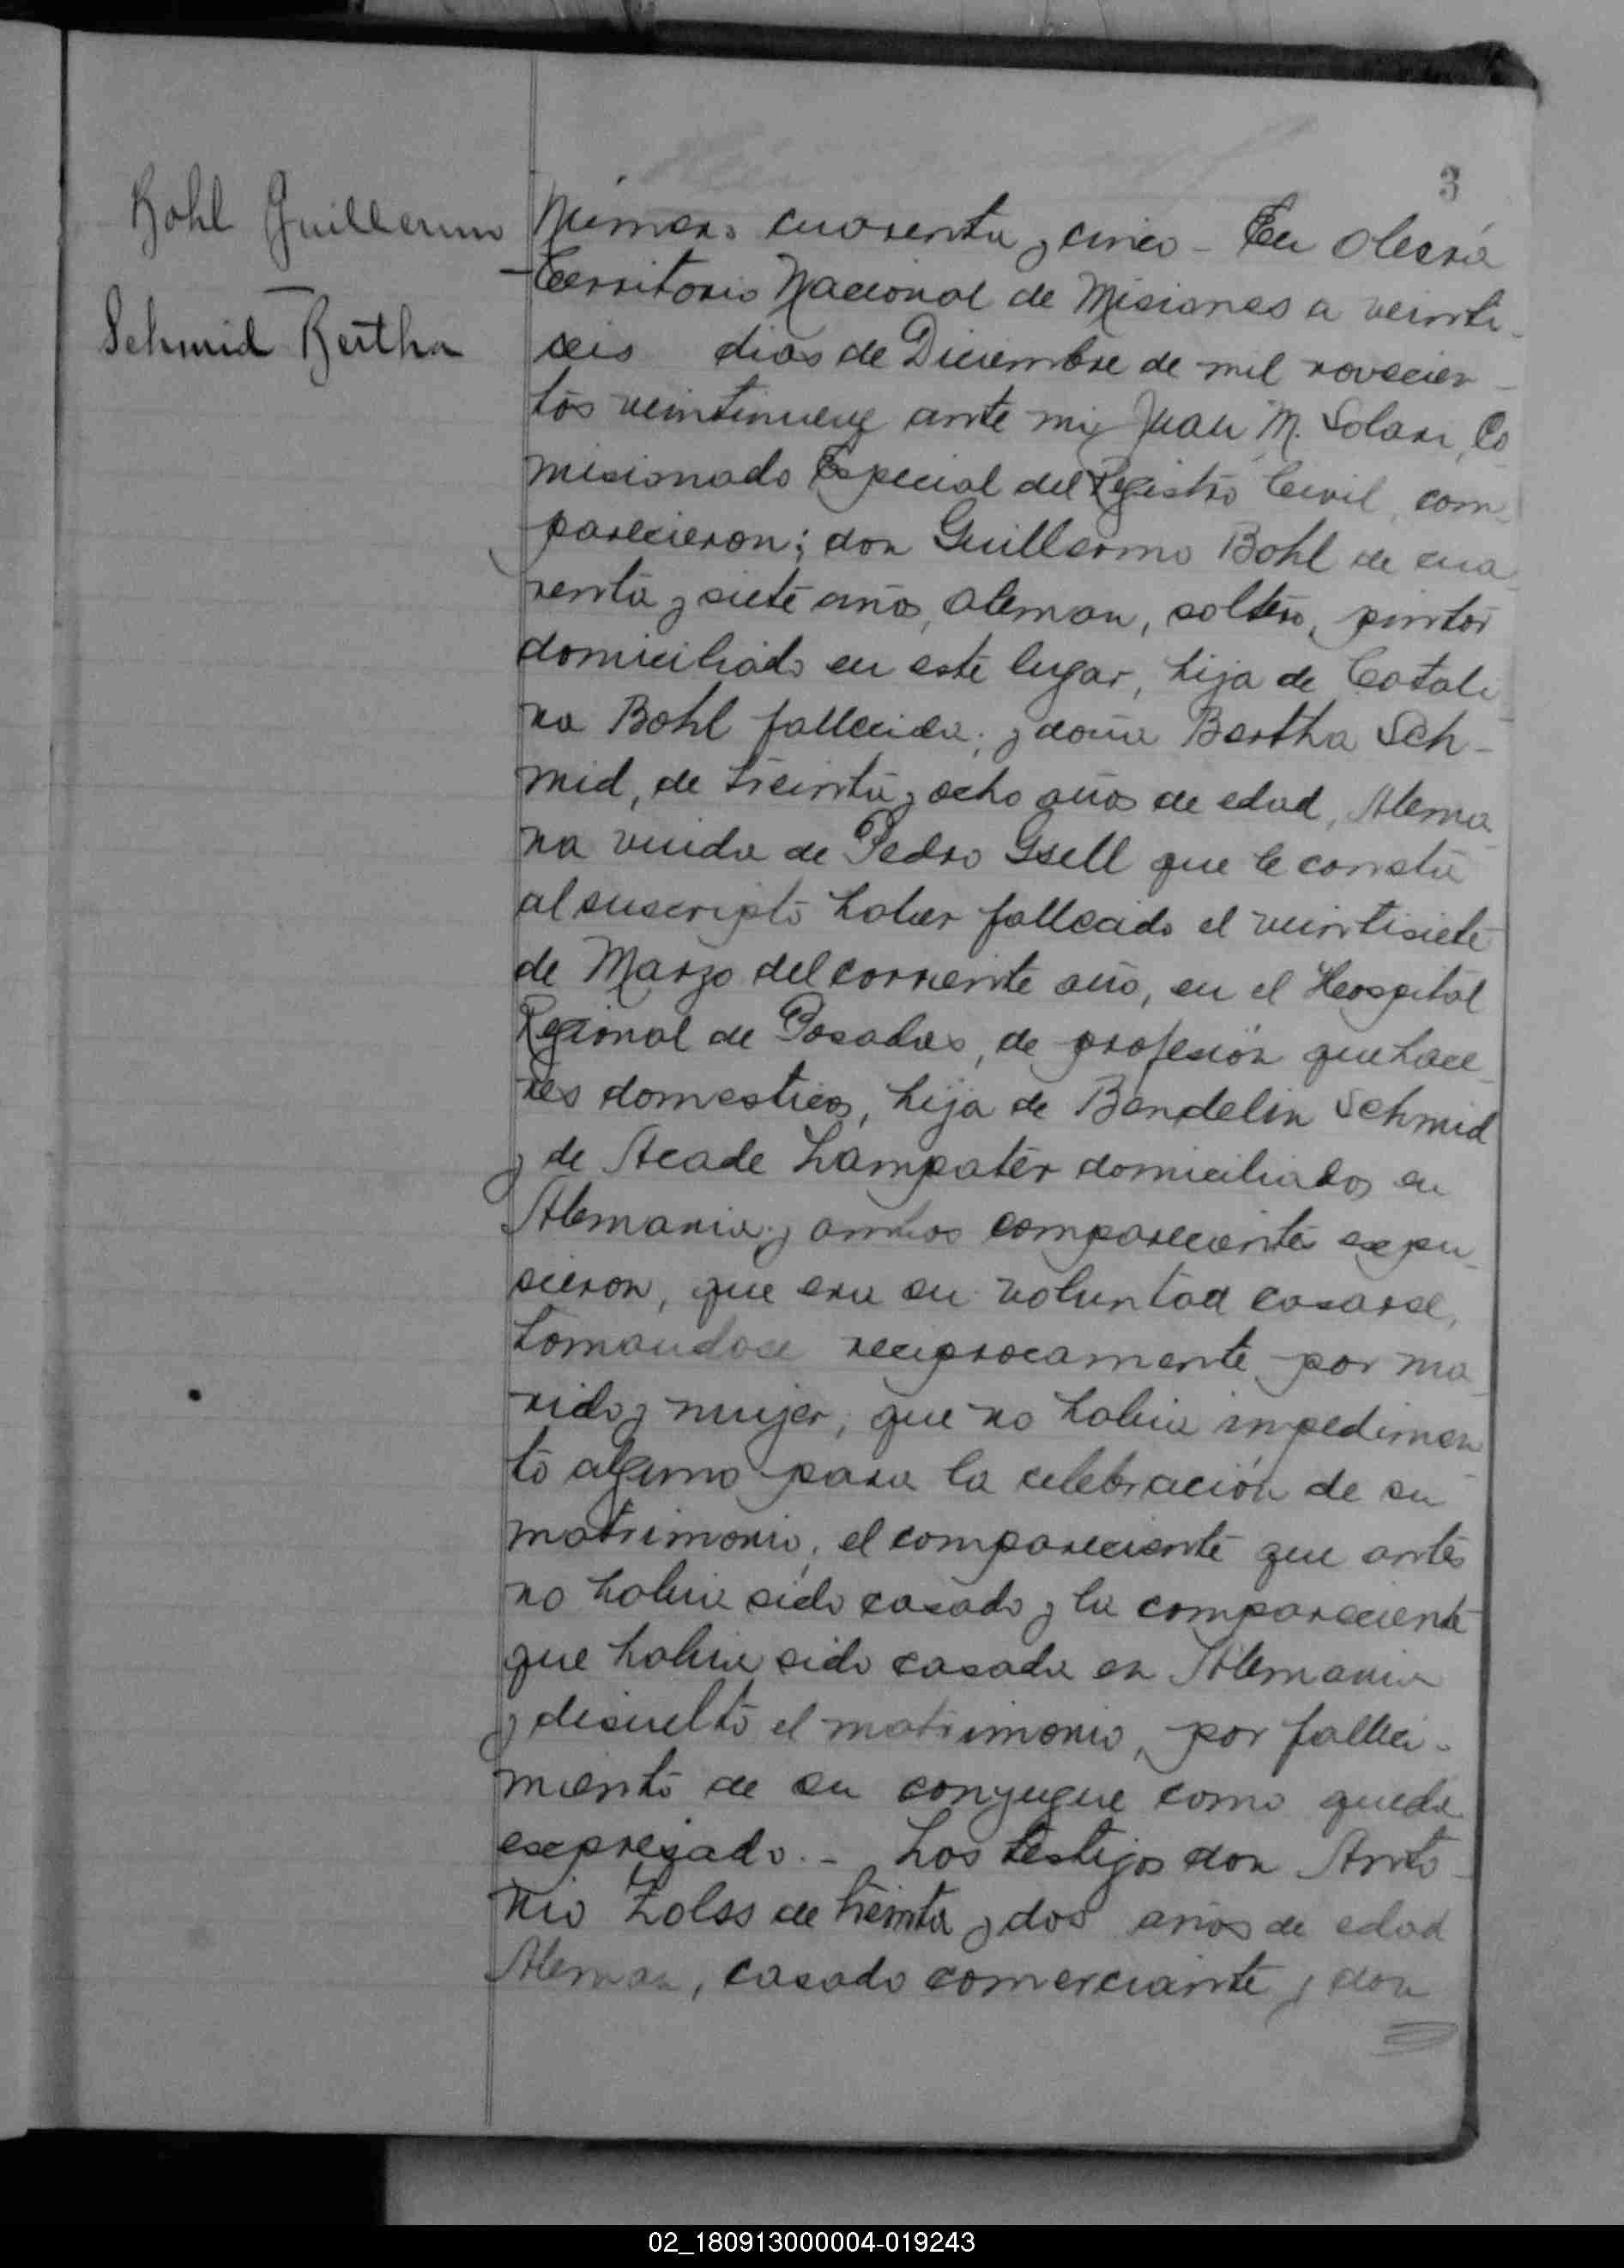 3
Bohl Guillermo
Schmid Bertha
Número cuarenta y cinco - En Oberá
Territorio Nacional de Misiones a veinti-
seis dias de Diciembre de mil novecien-
tos veintinueve ante mi Juan M. Solari, Co
misionado Especial del Registro Civil, com-
parecieron; don Guillermo Bohl de cua
renta y siete años, aleman, soltero, pintor
domiciliado en este lugar, hijo de Catali-
na Bohl fallecida; y doña Bertha Sch-
mid, de treinta y ocho años de edad, Alema-
na viuda de Pedro Gsell que le consta
al suscripto haber fallecido el veintisiete
de Marzo del corriente año, en el Hospital
Regional de Posadas, de profesión quehace-
res domesticos, hija de Bendelin Schmid
y de Acade Lampater domiciliados en
Alemania; y ambos comparecientes expu-
sieron, que era su voluntad casarse,
tomandose reciprocamente por ma-
rido y mujer, que no habia impedimen
to alguno para la celebración de su
matrimonio, el compareciente que antes
no habia sido casado y la compareciente
que habia sido casada en Alemania
y disuelto el matrimonio, por falleci-
miento de su conyugue como queda
expresado.- Los testigos don Anto-
nio Zolss de treinta y dos años de edad
Aleman, casado comerciante y don
02_180913000004-019243